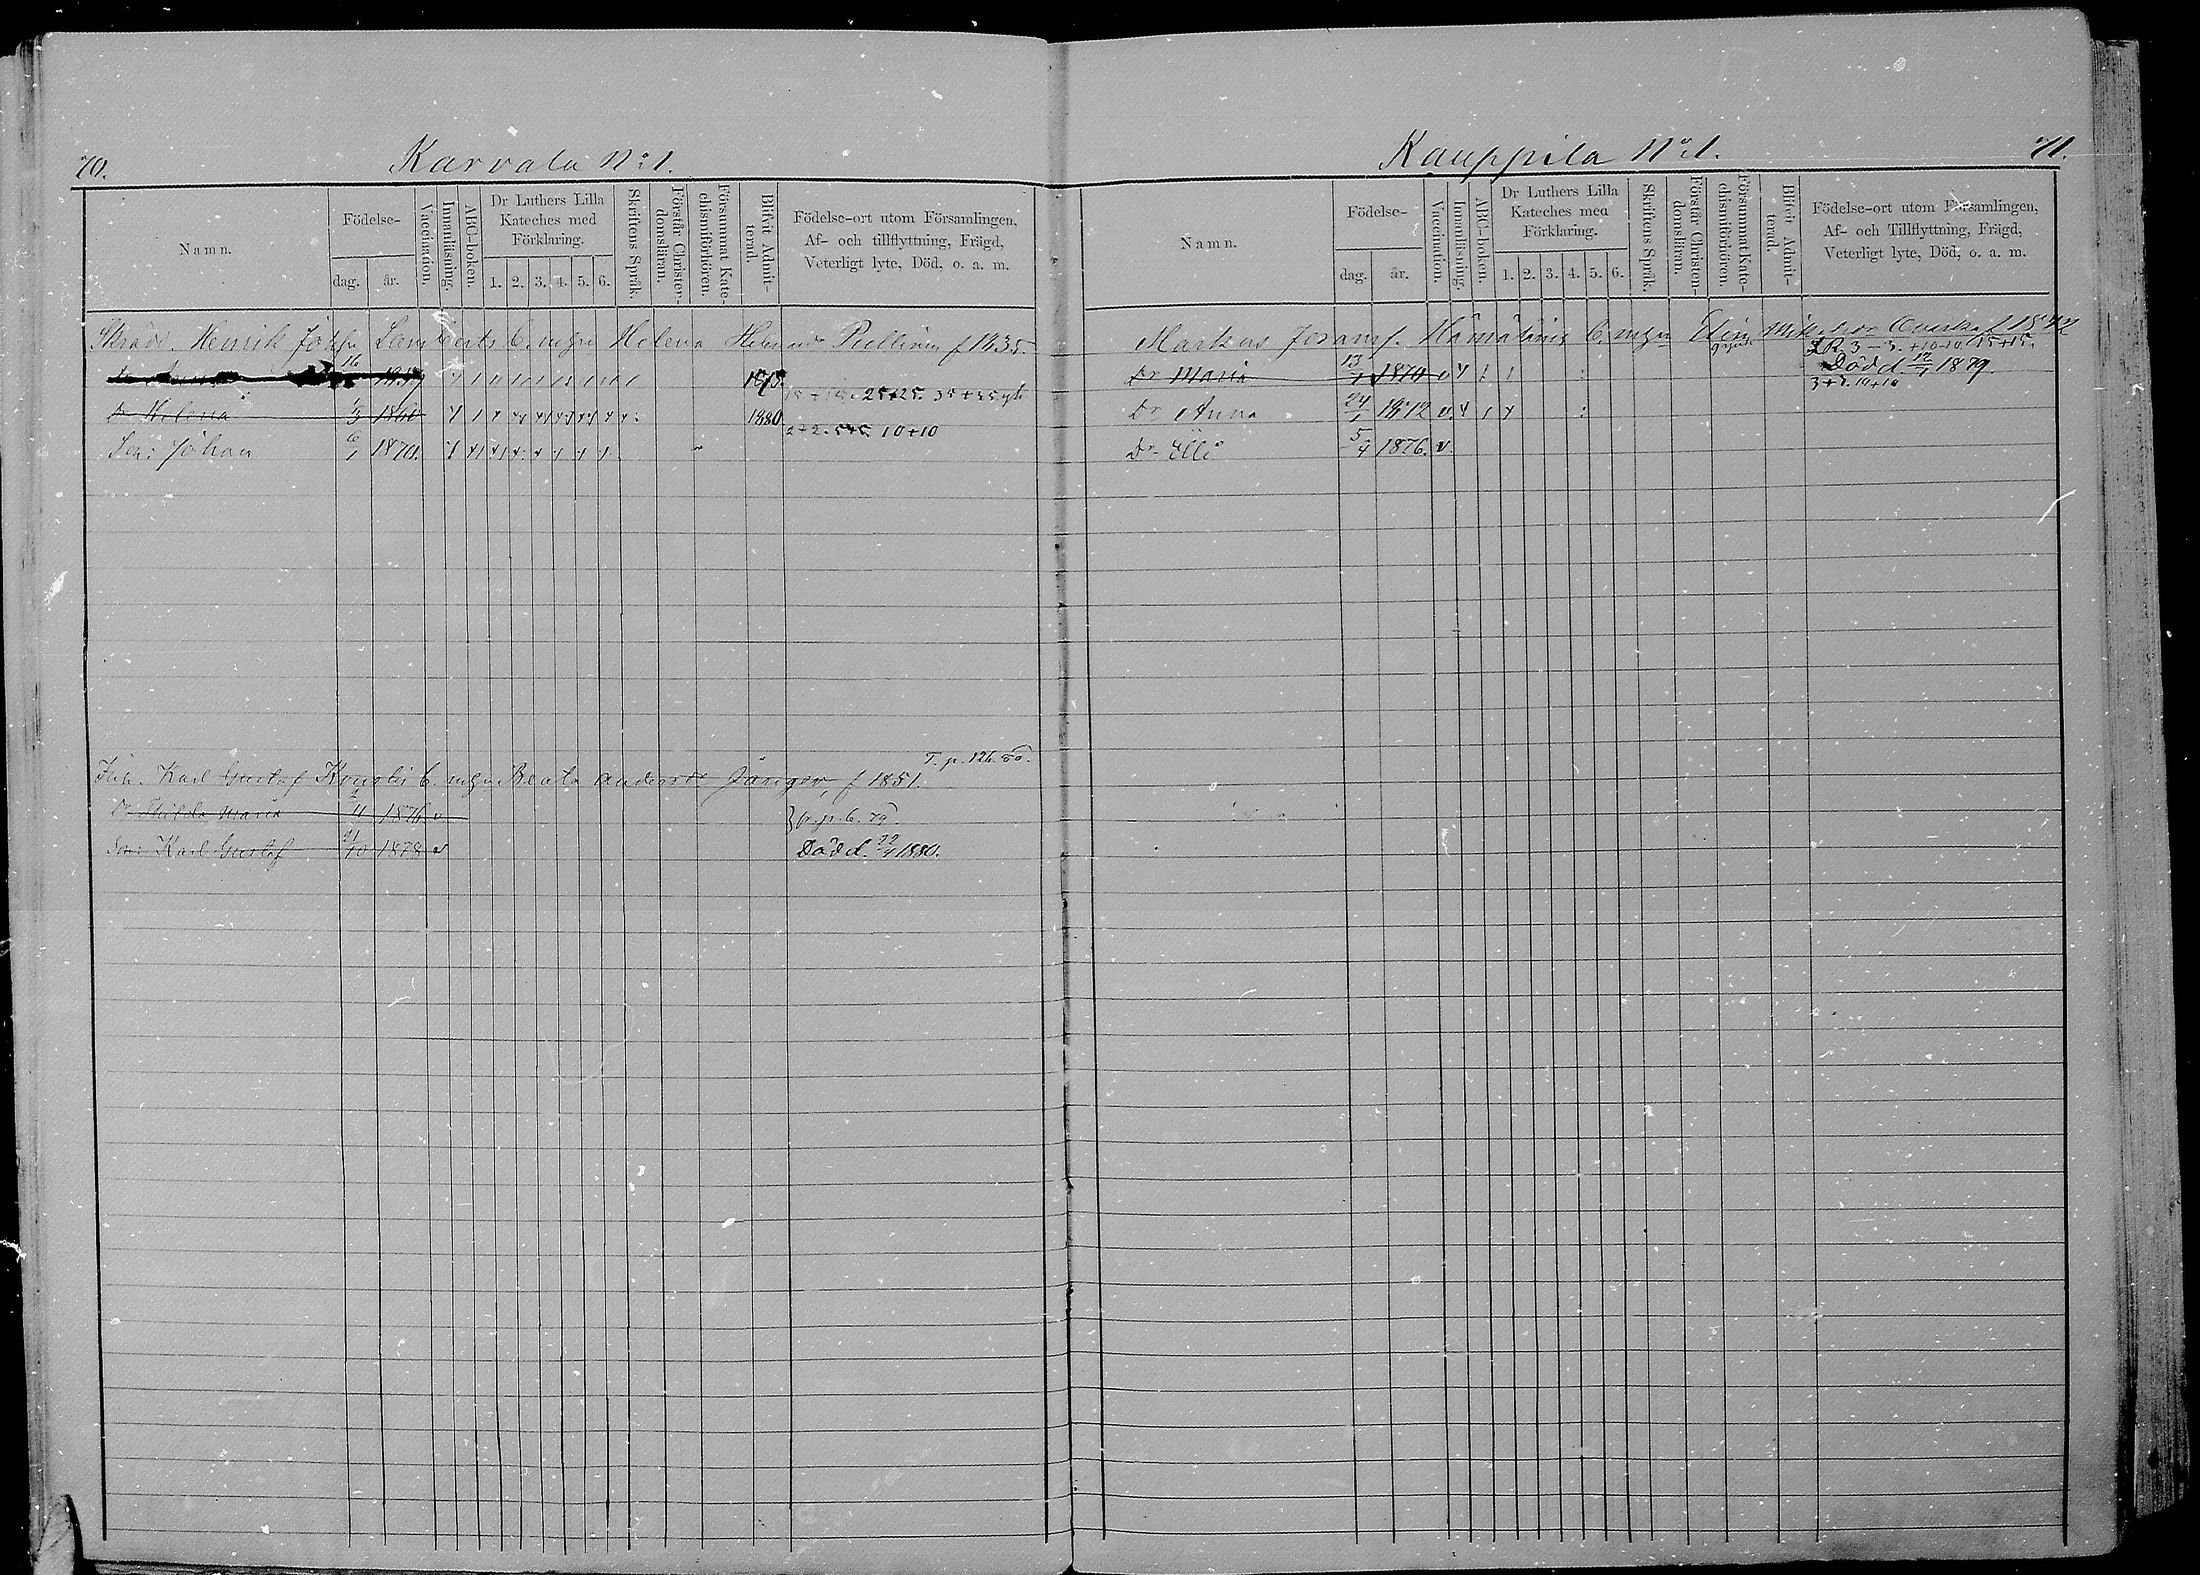 70.
Karvala No 1.
Namn.
Födelse-
dag.
år.
Vaccination.
Innanläsning.
ABC-boken
Dr Luthers Lilla
Kateches med
Förklaring.
1. 2. 3. 4. 5. 6.
Skriftens Språk.
Förstår Christen-
domsläran.
Försummat Kate-
chismiförhören.
Blifvit Admit-
terad.
Födelse-ort utom Församlingen,
Af- och tillflyttning, Frägd,
Veterligt lyte, Död, o. a. m.
Henrik Lamberts Helena f 1835.
1875 25+25. 35+35
Dr Helena 1/3 1860 1880 2+2. 5+5. 10+10
Son: Johan 6/1 1870.
T. p. 126. 80.
Karl Gustaf Beata f 1851.
Dr Maria 1876. v
Son: Karl Gustaf 21/10 1878 v Död d. 22/4 1880.
Kauppila No 1.
71.
Namn.
Födelse-
dag.
år.
Vaccination.
Innanläsning.
ABC-boken.
Dr Luthers Lilla
Kateches med
Förklaring.
1. 2. 3. 4. 5. 6.
Skriftens Språk.
Förstår Christen-
domsläran
Försummat Kate-
chismiförhören.
Blifvit Admit-
terad.
Födelse-ort utom Församlingen,
Af- och Tillflyttning, Frägd,
Veterligt lyte, Död, o. a. m.
Markus
3-3. +10-10 15+15.
Dr Maria 1870 Död d. 12/1 1879.
Dr Anna 24/1 1872 3+3. 10+10
Dr Elli 5/4 1876. v.